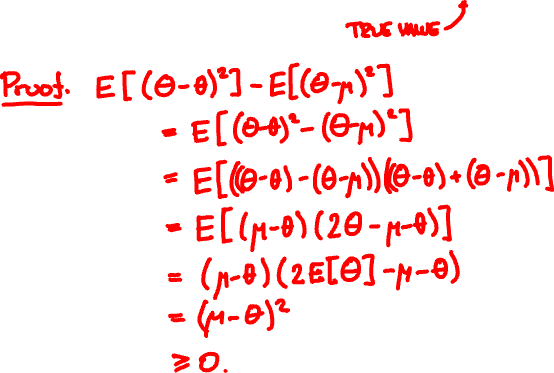 TRUE VALUE
Proof. E[(Θ-θ)²]-E[(Θ-μ)²]
= E[(Θ-θ)²-(Θ-μ)²]
= E[((Θ-θ)-(Θ-μ))((Θ-θ)+(Θ-μ))]
= E[(μ-θ)(2Θ-μ-θ)]
= (μ-θ)(2E[Θ]-μ-θ)
= (μ-θ)²
≥ 0.